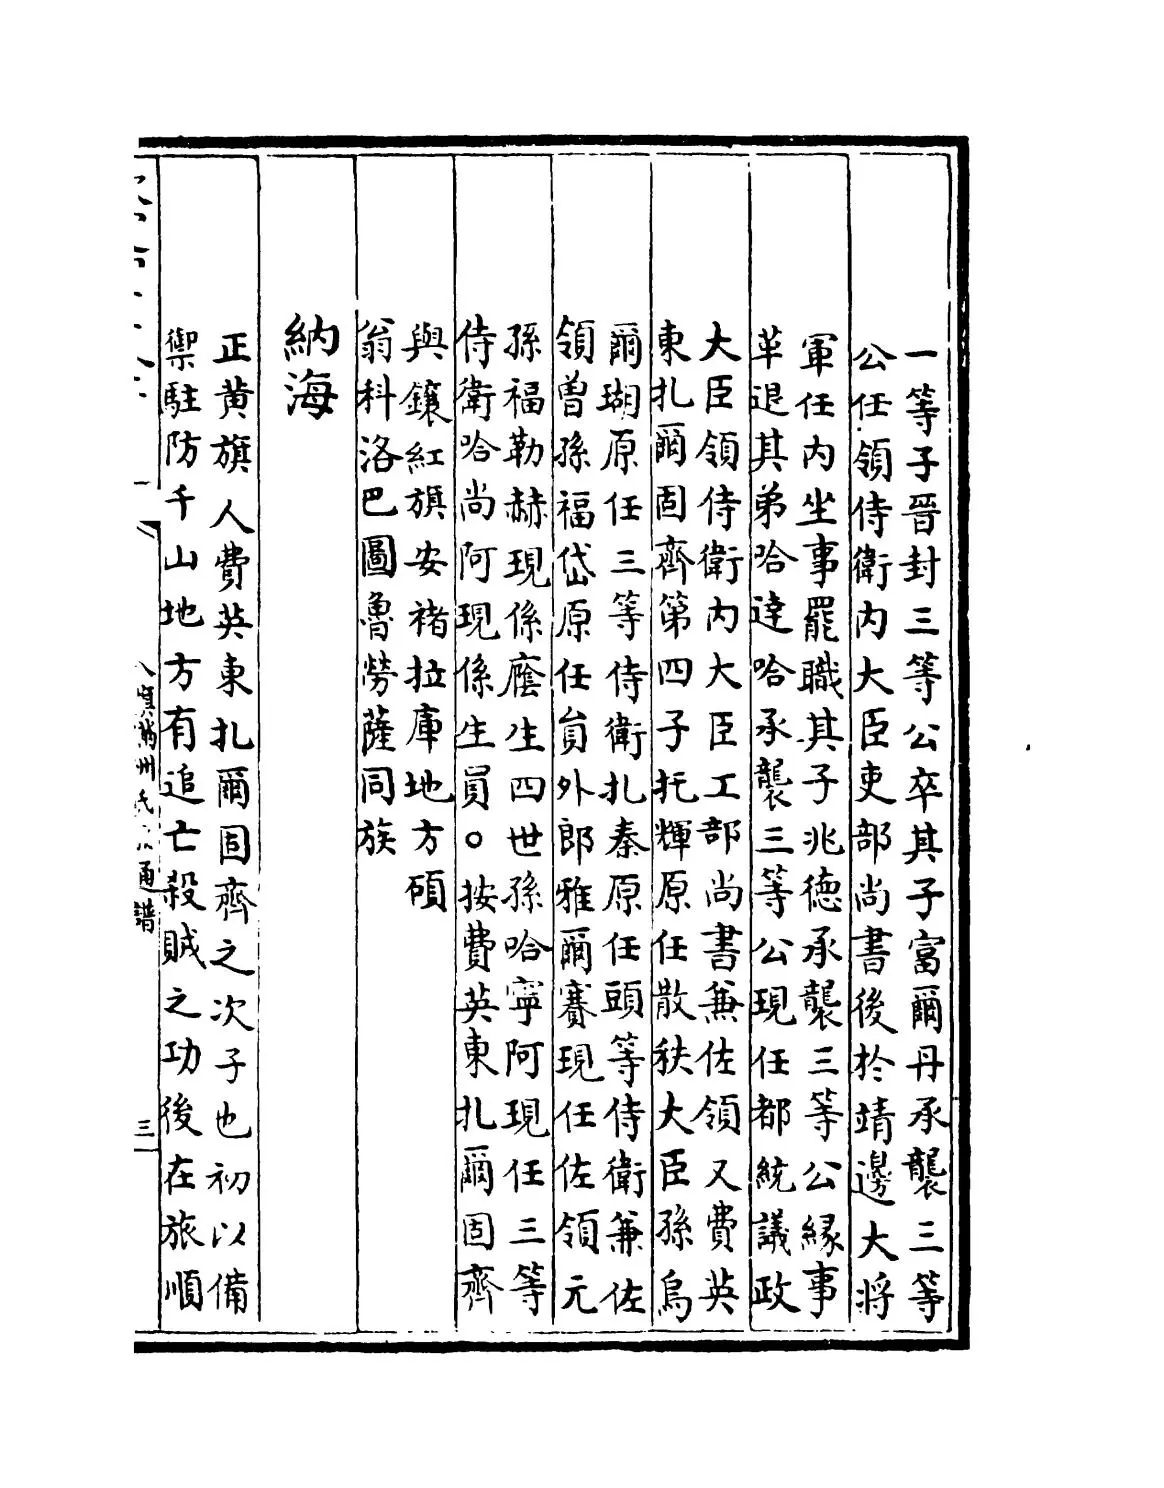 一等子晉封三等公卒其子富爾丹承襲三等
公任領侍衛内大臣吏部尚書後於靖邊大將
軍任内坐事罷職其子兆德承襲三等公縁事
革退其弟哈達哈承襲三等公現任都統議政
大臣領侍衛内大臣工部尚書兼佐領又費英
東扎爾固齊第四子托輝原任散秩大臣孫烏
爾瑚原任三等侍衛扎秦原任頭等侍衛兼佐
領曽孫福岱原任員外郎雅爾賽現任佐領元
孫福勒赫現係廕生四世孫哈寧阿現任三等
侍衛哈尚阿現係生員○按費英東扎爾固齊
與鑲紅旗安褚拉庫地方碩
翁科洛巴圖魯勞薩同族
納海
正黄旗人費英東扎爾固齊之次子也初以備
禦駐防千山地方有追亡殺賊之功後在旅順
八旗滿洲氏族通譜
三